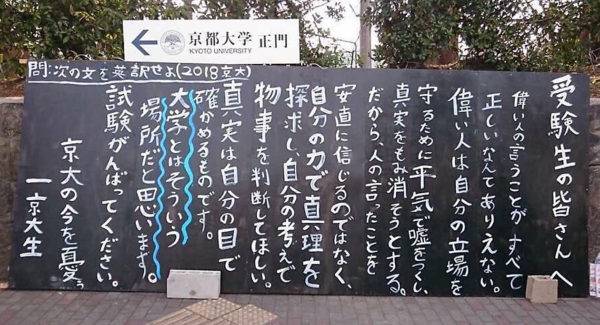 京都大学 正門
KYOTO UNIVERSITY
問:次の文を英訳せよ(2018京大)
受験生の皆さんへ
偉い人の言うことが、すべて
正しいなんてありえない。
偉い人は自分の立場を
守るために平気で嘘をつくし、
真実をもみ消そうとする。
だから、人の言ったことを
安直に信じるのではなく、
自分の力で真理を
探求し、自分の考えで
物事を判断してほしい。
真実は自分の目で
確かめるものです。
大学とはそういう
場所だと思います。
試験がんばってください。
京大の今を憂う
一京大生